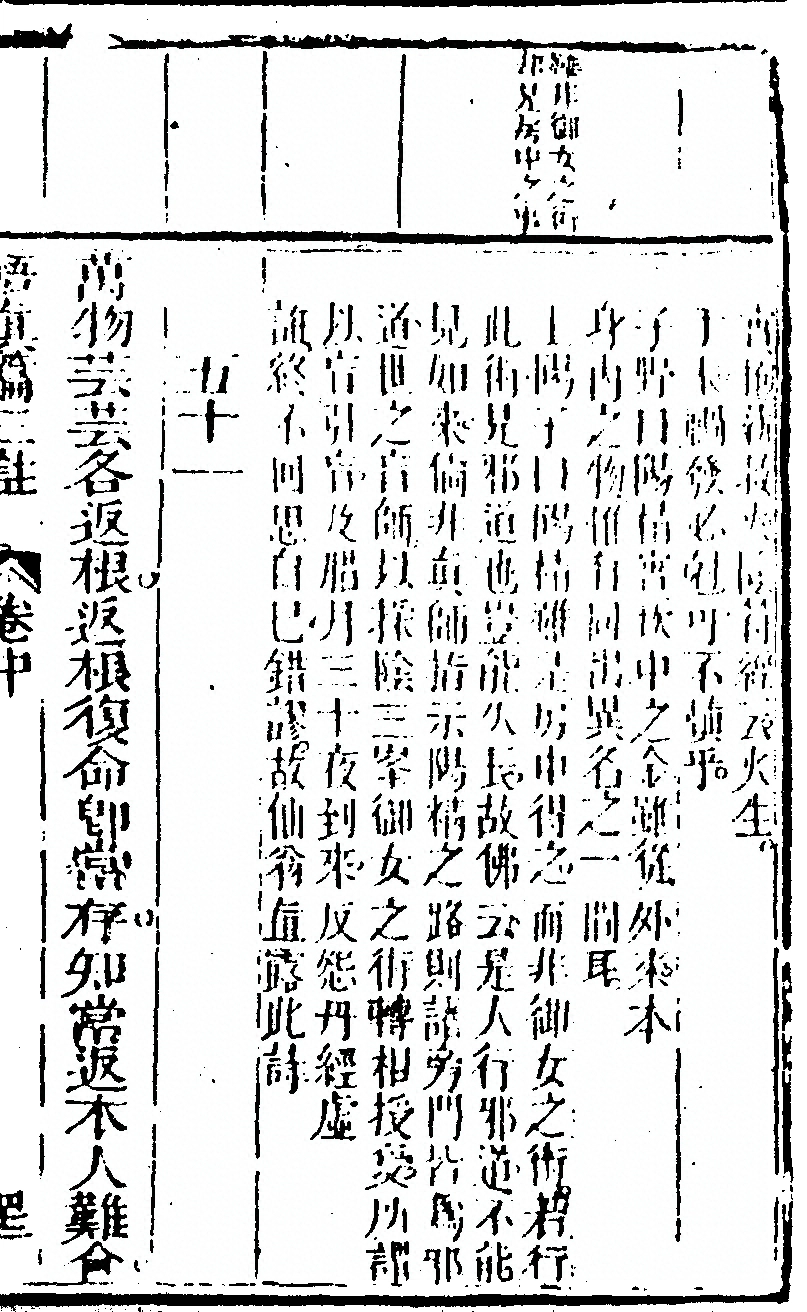 雖非御女之術
却是房中之事
於木禍發必尅可不慎乎
子野曰陽精寄坎中之金雖從外來本
身內之物但有同出異名之一間耳
上陽子曰陽精雖是房中得之而非御女之術若行
此術是邪道也豈能久長故佛云是人行邪道不能
見如來倘非真師指示陽精之路則諸旁門皆為邪
道世之盲師以採陰三峯御女之術轉相授受所謂
以盲引盲及臘月三十夜到來反怨丹經虛
誑終不回思自己錯謬故仙翁直露此詩
五十一
萬物芸芸各返根返根復命即常存知常返本人難會
悟真篇三註 卷中